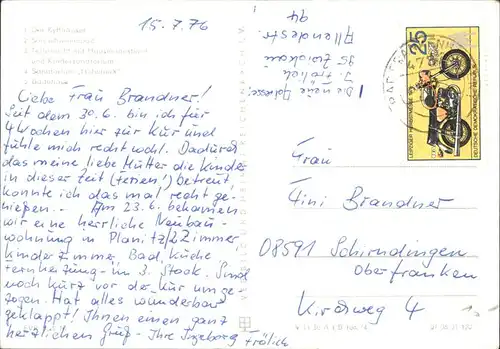 15.7.76
Liebe Frau Brandner!
Seit dem 30.6. bin ich für
4 Wochen hier zur Kur und
fühle mich recht wohl. Dadurch
das meine liebe Mutter die Kinder
in dieser Zeit (Ferien!) betreut
konnte ich das mal recht ge-
nießen. - Am 23.6. bekamen
wir eine herrliche Neubau-
wohnung in Planitz/2 Zimmer
Kinderzimmer, Bad, Küche
Fernheizung - in 3. Stock. Sind
noch kurz vor der Kur umge-
zogen. Hat alles wunderbar
geklappt! Ihnen einen ganz
herzlichen Gruß - Ihre Ingeborg Frölich
! Die neue Adresse:
J. Frölich
95 Zwickau
Allendestr.
94
25
Frau
Fini Brandner
08591 Schirndingen
Oberfranken
Kirchweg 4